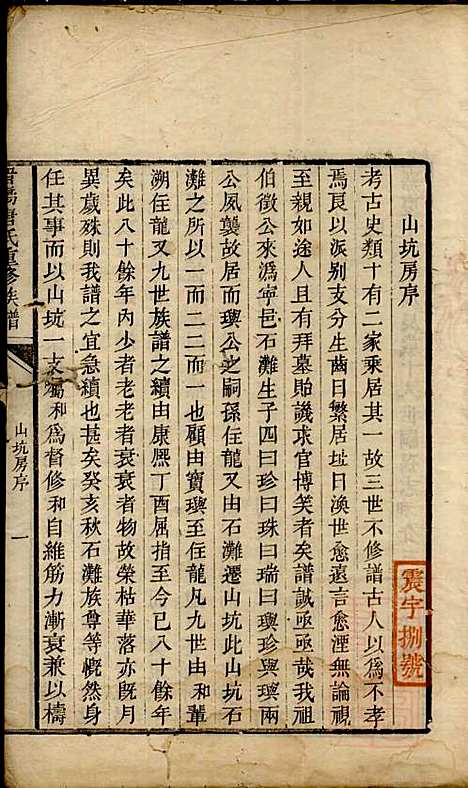 山坑房序
考古史類十有二家乘居其一故三世不修譜古人以為不孝
焉良以派别支分生齒日繁居址日渙世愈遠言愈湮無論視
至親如途人且有拜墓貽譏求官博笑者矣譜誠亟亟哉我祖
伯徵公來為寧邑石灘生子四曰珍曰珠曰瑞曰璵珍與璵兩
公風襲故居而璵公之嗣孫住龍又由石灘遷山坑此山坑石
灘之所以一而二二而一也顧由寶璵至住龍凡九世由和輩
溯住龍又九世族譜之續由康熙丁酉屈指至今已八十餘年
矣此八十餘年內少者老老者衰衰者物故榮枯華落亦既月
異歲殊則譜之宜急續也甚矣癸亥秋石灘族尊等慨然身
任其事而以山坑一支囑和為督修和自維筋力漸衰兼以檮
氏重修族譜
山坑房序
一
震字捌號